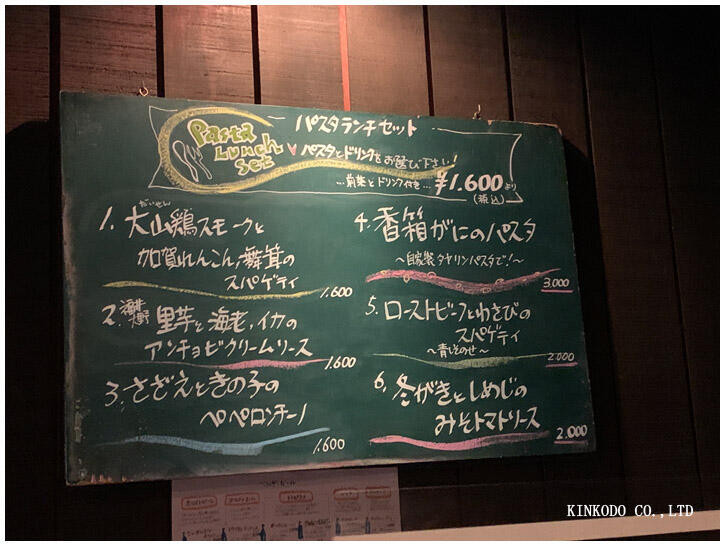 Pasta
Lunch
Set
パスタランチセット
♥パスタとドリンクをお選び下さい!
...前菜とドリンク付き... ¥1.600より
(税込)
だいせん
1. 大山鶏スモークと
加賀れんこん、舞茸の
スパゲティ
1.600
2. 里芋と海老、イカの
アンチョビクリームソース
1.600
3. さざえときの子の
ペペロンチーノ
1.600
4. 香箱がにのパスタ
~自家製タヤリンパスタで!~
3.000
5. ローストビーフとわさびの
スパゲティ
~青じそのせ~
2.000
6. 冬がきとしめじの
みそトマトソース
2.000
KINKODO CO.,LTD